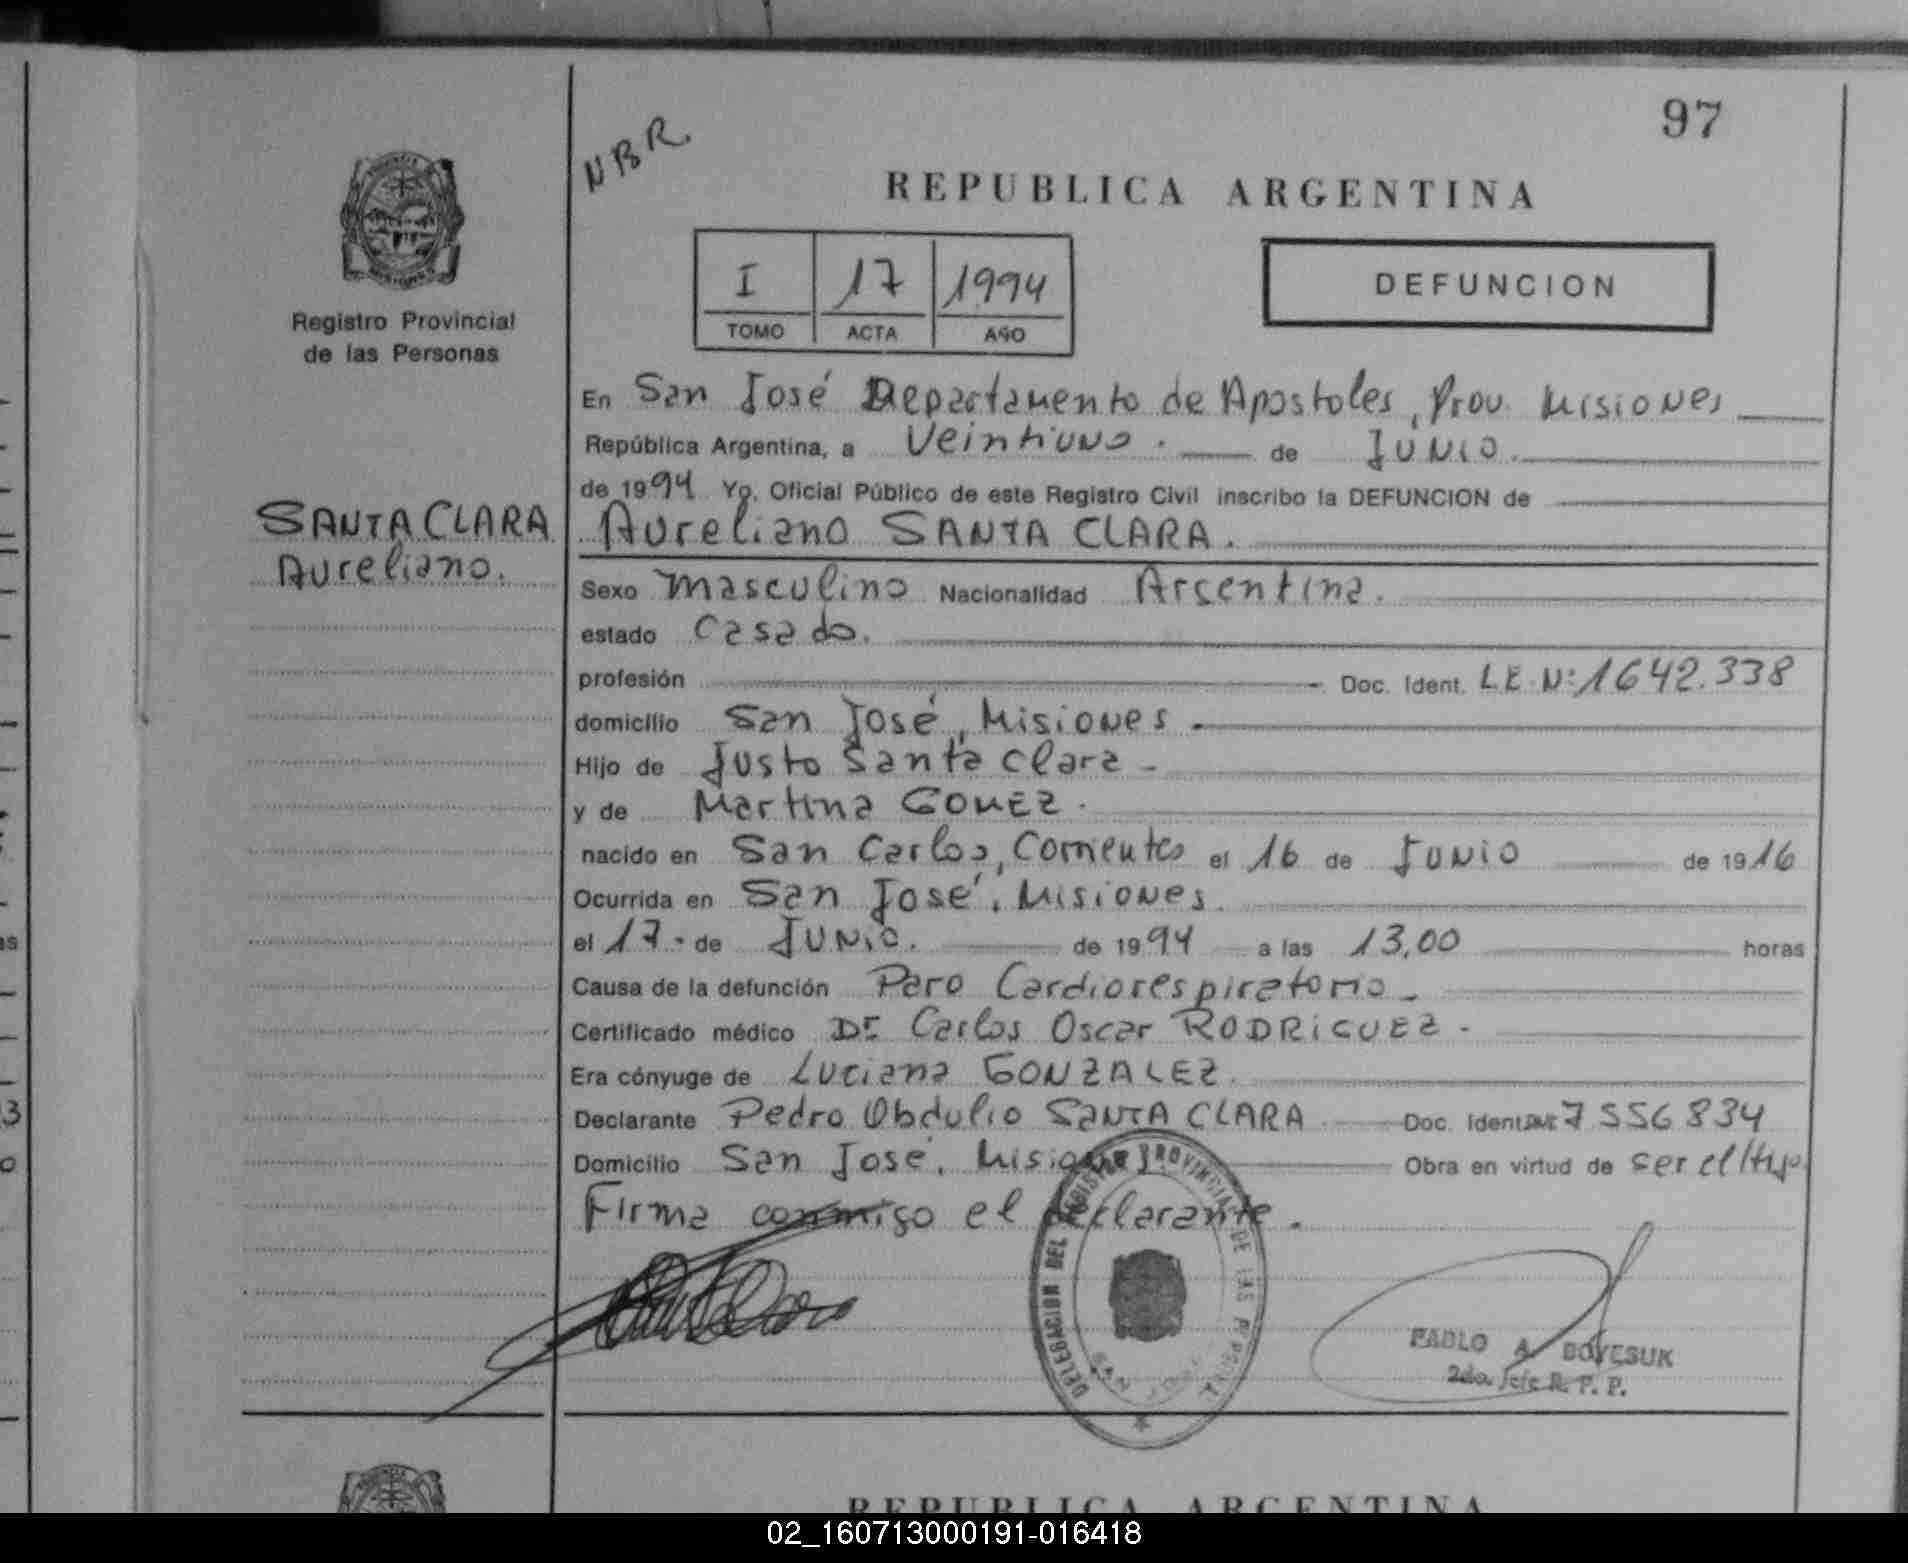 97
NBR.
REPUBLICA ARGENTINA
I 17 1994
TOMO ACTA AÑO
DEFUNCION
Registro Provincial
de las Personas
SANTA CLARA
Aureliano.
En San José Departamento de Apostoles, Prov. Misiones
República Argentina, a Veintiuno. de Junio.
de 1994 Yo, Oficial Público de este Registro Civil inscribo la DEFUNCION de
Aureliano SANTA CLARA.
Sexo Masculino Nacionalidad Argentina.
estado Casado.
profesión Doc. Ident. L.E. Nº: 1642.338
domicilio San José, Misiones.
Hijo de Justo Santa Clara -
y de Martina GOMEZ.
nacido en San Carlos, Corrientes el 16 de Junio de 1916
Ocurrida en San José, Misiones.
el 17. de Junio. de 1994 a las 13,00 horas
Causa de la defunción Paro Cardiorespiratorio -
Certificado médico Dr. Carlos Oscar RODRIGUEZ -
Era cónyuge de Luciana GONZALEZ.
Declarante Pedro Obdulio SANTA CLARA Doc. Ident. 7556834
Domicilio San José, Misiones Obra en virtud de ser el Hijo.
Firma conmigo el declarante.
DELEGACION DEL REGISTRO PROVINCIAL DE LAS PERSONAS
SAN JOSE
PABLO A. BOYESUK
2do. Jefe R. P. P.
REPUBLICA ARGENTINA
02_160713000191-016418